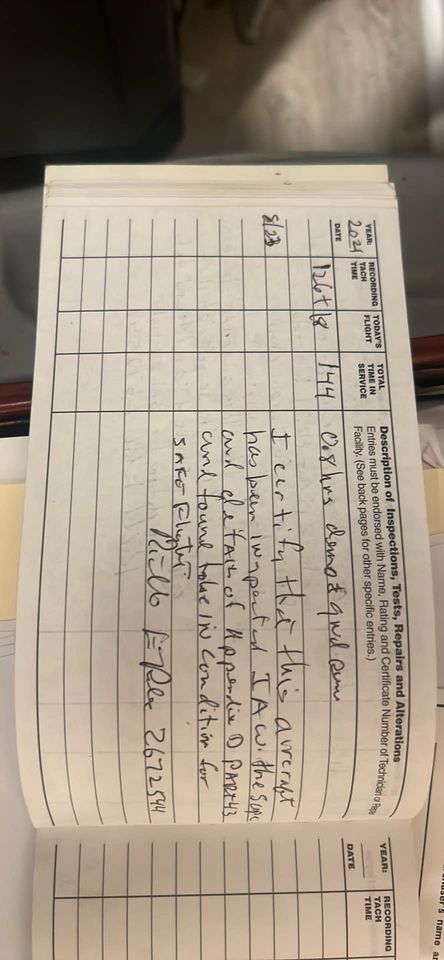 YEAR: 2021
RECORDING TACH TIME
TODAY'S FLIGHT
TOTAL TIME IN SERVICE
Description of Inspections, Tests, Repairs and Alterations
Entries must be endorsed with Name, Rating and Certificate Number of Technician or Repair
Facility. (See back pages for other specific entries.)
DATE
126+18 144 hrs & gnd run
I certify that this aircraft
8/23 has been inspected IAW the scope
and detail of Appendix D Part 43
and found to be in condition for
safe flight
2672544
YEAR:
RECORDING TACH TIME
DATE